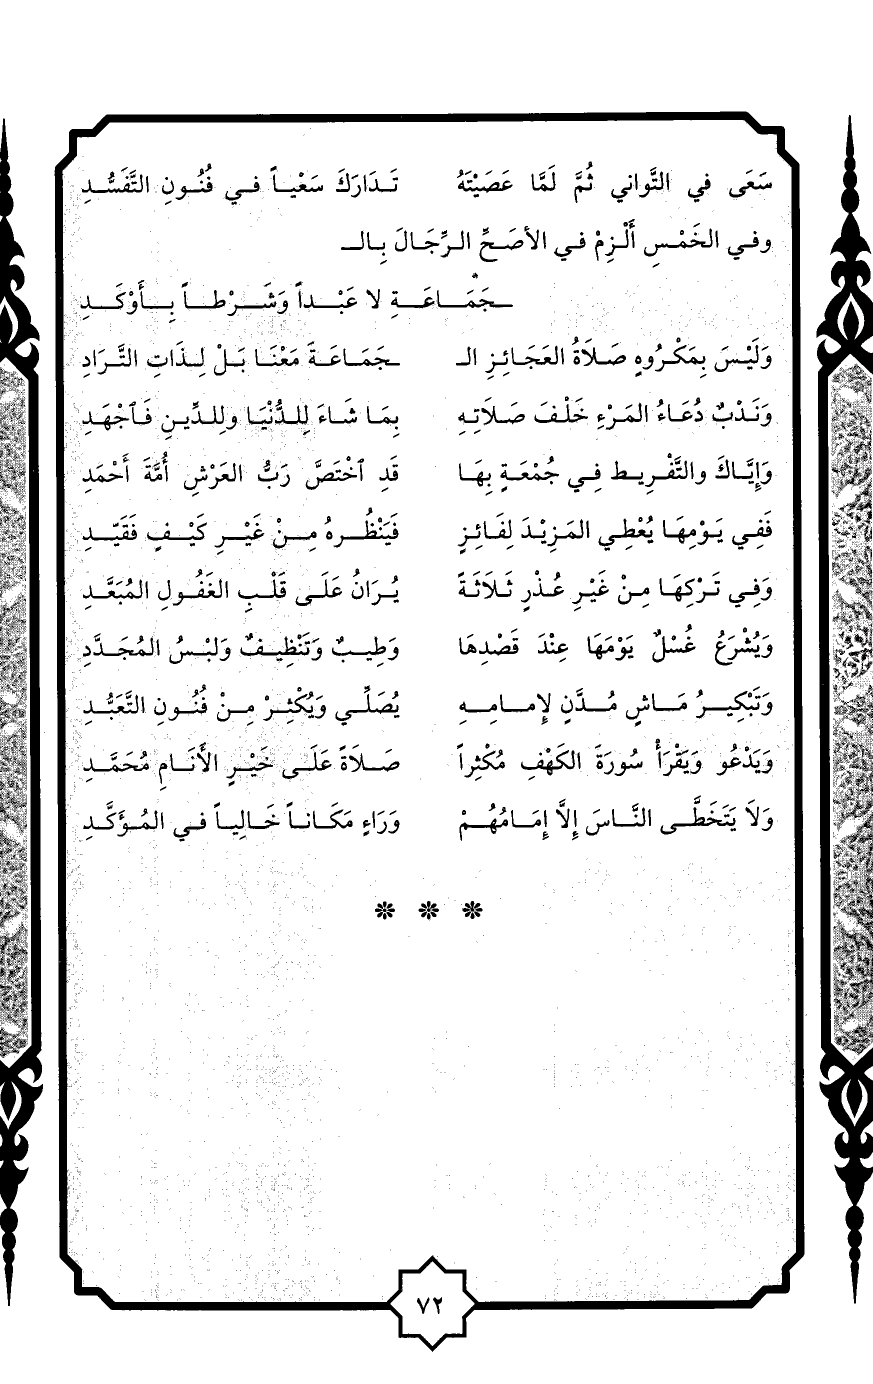 سَعَى في التَّواني ثُمَّ لَمَّا عَصَيْتَهُ تَـدَارَكَ سَعْيـاً فـي فُنُـونِ التَّفَسُّـدِ
وفـي الخَمْـسِ أَلْـزِمْ فـي الأصَـحِّ الـرِّجَـالَ بِـالـ
ـجَمَـاعَـةِ لا عَبْـداً وَشَـرْطـاً بِـأَوْكَـدِ
وَلَيْـسَ بِمَكْـرُوهٍ صَـلَاةُ العَجَـائِـزِ الـ ـجَمَـاعَـةَ مَعْنَـا بَـلْ لِـذَاتِ التَّـرَادِ
وَنَـدْبٌ دُعَـاءُ المَـرْءِ خَلْـفَ صَـلَاتِـهِ بِمَـا شَـاءَ لِلـدُّنْيَـا ولِلـدِّيـنِ فَـٱجْهَـدِ
وَإِيَّـاكَ والتَّفْـرِيـط فِـي جُمْعَـةٍ بِهَـا قَدِ ٱخْتَصَّ رَبُّ العَرْشِ أُمَّةَ أَحْمَدِ
فَفِـي يَـوْمِهَـا يُعْطِـي المَـزِيْـدَ لِفَـائِـزٍ فَيَنْظُـرهُ مِـنْ غَيْـرِ كَيْـفٍ فَقَيِّـدِ
وَفِـي تَـرْكِهَـا مِـنْ غَيْـرِ عُـذْرٍ ثَـلَاثَـةً يُـرَانُ عَلَـى قَلْـبِ الغَفُـولِ المُبَعَّـدِ
وَيُشْرَعُ غُسْلٌ يَوْمَهَا عِنْدَ قَصْدِهَا وَطِيـبٌ وَتَنْظِيـفٌ وَلبْـسُ المُجَـدَّدِ
وَتَبْكِيـرُ مَـاشٍ مُـدَّنٍ لِإمـامِـهِ يُصَلِّـي وَيُكْثِـرْ مِـنْ فُنُـونِ التَّعَبُّـدِ
وَيَدْعُو وَيَقْرَأُ سُورَةَ الكَهْفِ مُكْثِراً صَـلَاةً عَلَـى خَيْـرِ الأَنَـامِ مُحَمَّـدِ
وَلَا يَتَخَطَّـى النَّـاسَ إِلَّا إِمَـامُهُـمْ وَرَاءٍ مَكَـانـاً خَـالِيـاً فـي المُـؤَكَّـدِ
٧٢